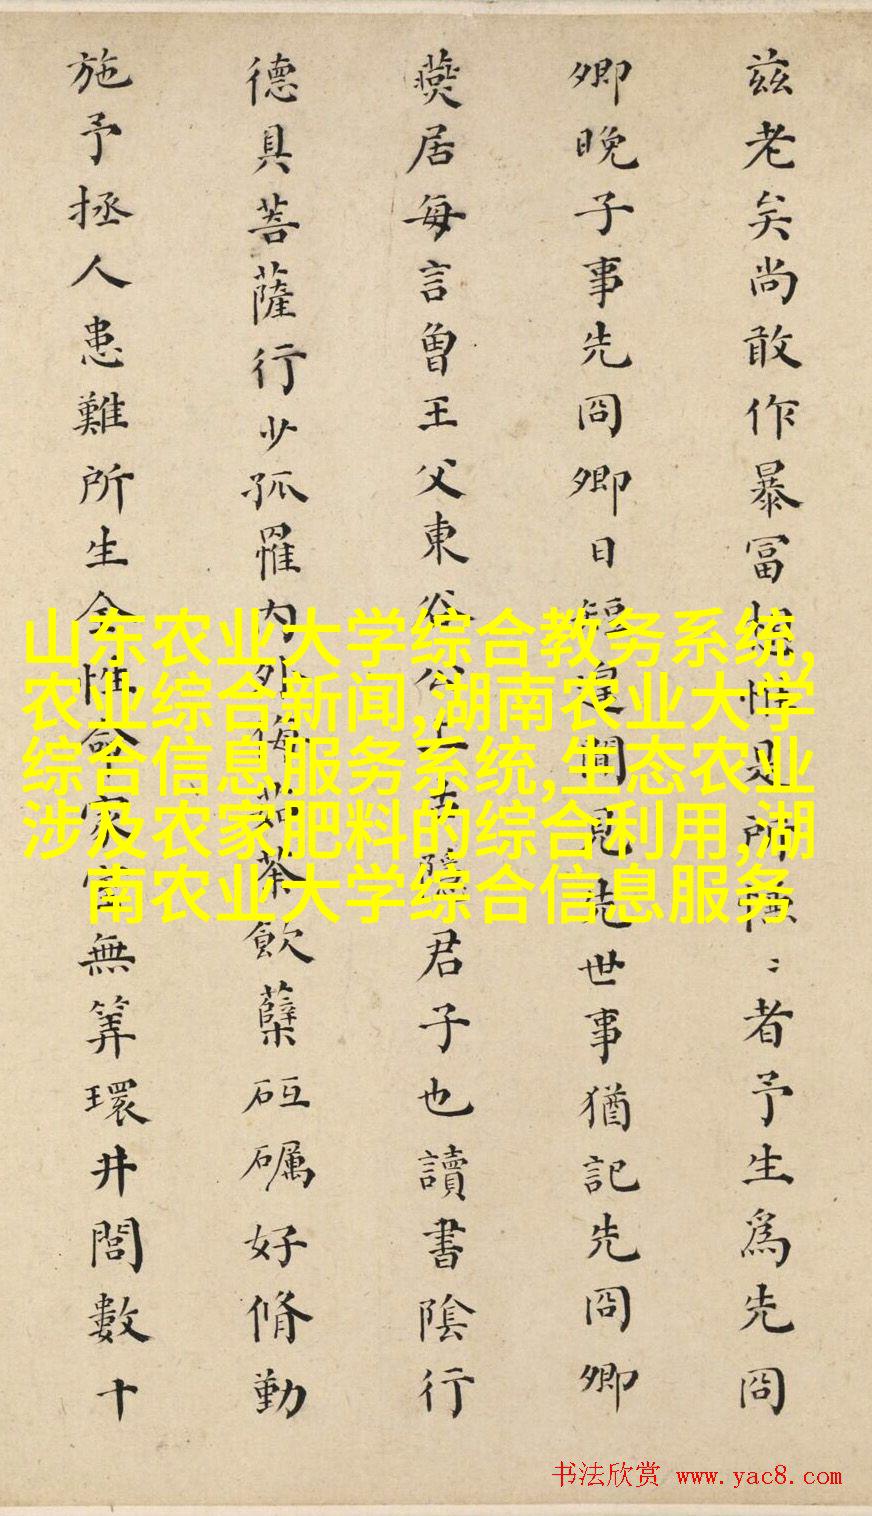 兹老矣尚敢作暴冨 惟是所 者予生爲先冏
卿晚子事先冏卿日 遑聞見先世事猶記先冏卿
燕居每言曾王父東谷公 隱君子也讀書陰行
德具菩薩行少孤罹内外侮茹荼飲蘖砥礪好脩勤
施予拯人患難所生 惟 家 無筭環井閭數十
山东农业大学综合教务系统,
农业综合新闻,湖南农业大学
综合信息服务系统,生态农业
涉及农家肥料的综合利用,湖
南农业大学综合信息服务
书法欣赏 www.yac8.com